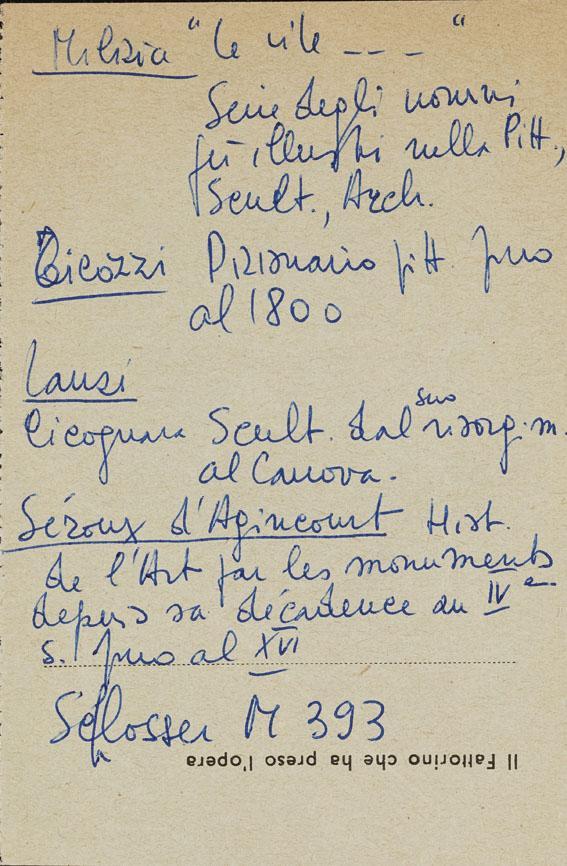 Milizia "Le vite --- "
Serie degli uomini
più illustri nella Pitt.,
Scult., Arch.
Ticozzi Dizionario pitt. fino
al 1800
Lanzi
Cicognara Scult. dal suo risorg.m.
al Canova.
Séroux d'Agincourt Hist.
de l'Art par les monuments
depuis sa décadence au IVe
s. fino al XVI
Schlosser M 393
Il Fattorino che ha preso l'opera